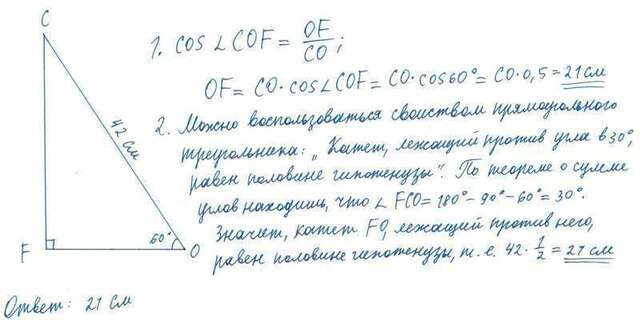 C
1. cos∠COF = OF/CO;
OF = CO·cos∠COF = CO·cos60° = CO·0,5 = 21 см
42 см
2. Можно воспользоваться свойством прямоугольного
треугольника: „Катет, лежащий против угла в 30°,
равен половине гипотенузы". По теореме о сумме
углов находим, что ∠FCO = 180° - 90° - 60° = 30°.
Значит, катет FO, лежащий против него,
равен половине гипотенузы, т. е. 42 · 1/2 = 21 см
F 60° O
Ответ: 21 см